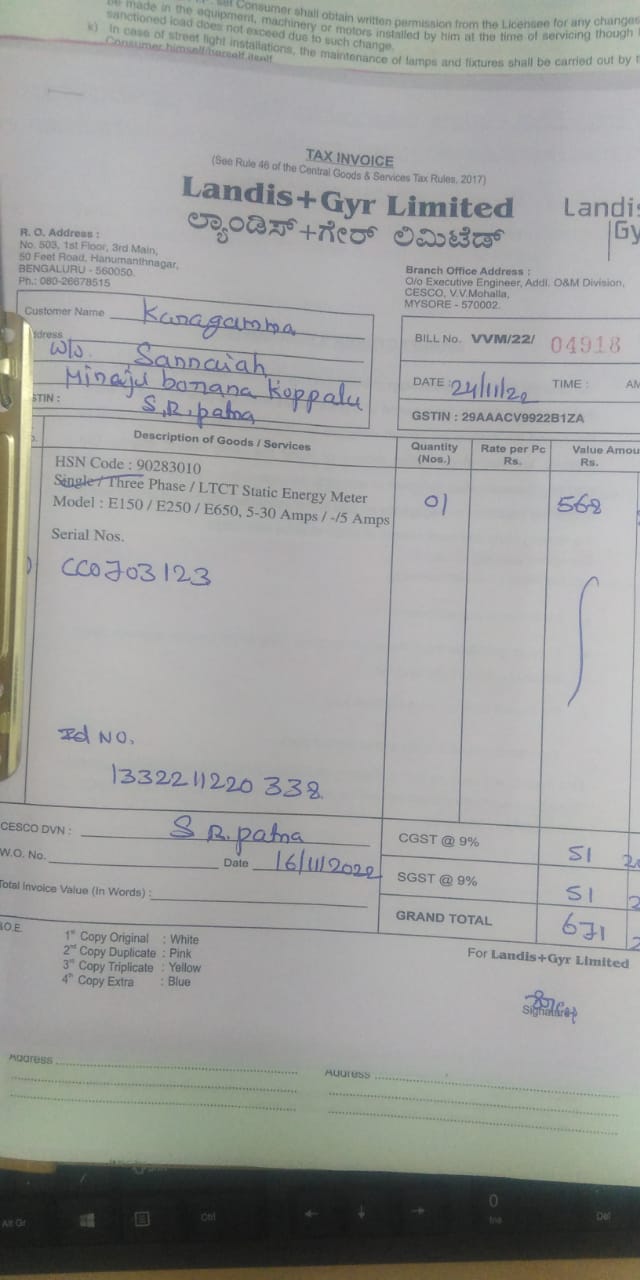 be made in the equipment, machinery or motors installed by him at the time of servicing though
sanctioned load does not exceed due to such change.
k) In case of street light installations, the maintenance of lamps and fixtures shall be carried out by
Consumer himself/herself itself
TAX INVOICE
(See Rule 46 of the Central Goods & Services Tax Rules, 2017)
Landis+Gyr Limited
ಲ್ಯಾಂಡಿಸ್+ಗೇರ್ ಲಿಮಿಟೆಡ್
Landis
Gy
R. O. Address :
No. 503, 1st Floor, 3rd Main,
50 Feet Road, Hanumanthnagar,
BENGALURU - 560050.
Ph.: 080-26678515
Branch Office Address :
O/o Executive Engineer, Addl. O&M Division,
CESCO, V.V.Mohalla,
MYSORE - 570002.
Customer Name Karagamma
dress
W/o. Sannaiah
Minaju bonana Koppalu
STIN : S.R.patna
BILL No. VVM/22/ 04918
DATE : 24/11/22 TIME : AM
GSTIN : 29AAACV9922B1ZA
Description of Goods / Services
Quantity (Nos.)
Rate per Pc Rs.
Value Amou Rs.
HSN Code : 90283010
Single / Three Phase / LTCT Static Energy Meter
Model : E150 / E250 / E650, 5-30 Amps / -/5 Amps
01
568
Serial Nos.
CC0703123
Id NO.
1332211220338
CESCO DVN : S R.patna
W.O. No. Date 16/11/2022
Total Invoice Value (In Words) :
CGST @ 9% 51
SGST @ 9% 51
GRAND TOTAL 671
.O.E.
1st Copy Original : White
2nd Copy Duplicate : Pink
3rd Copy Triplicate : Yellow
4th Copy Extra : Blue
For Landis+Gyr Limited
Signature
Address
Address
Alt Gr
Ctrl
0
Ins
Del